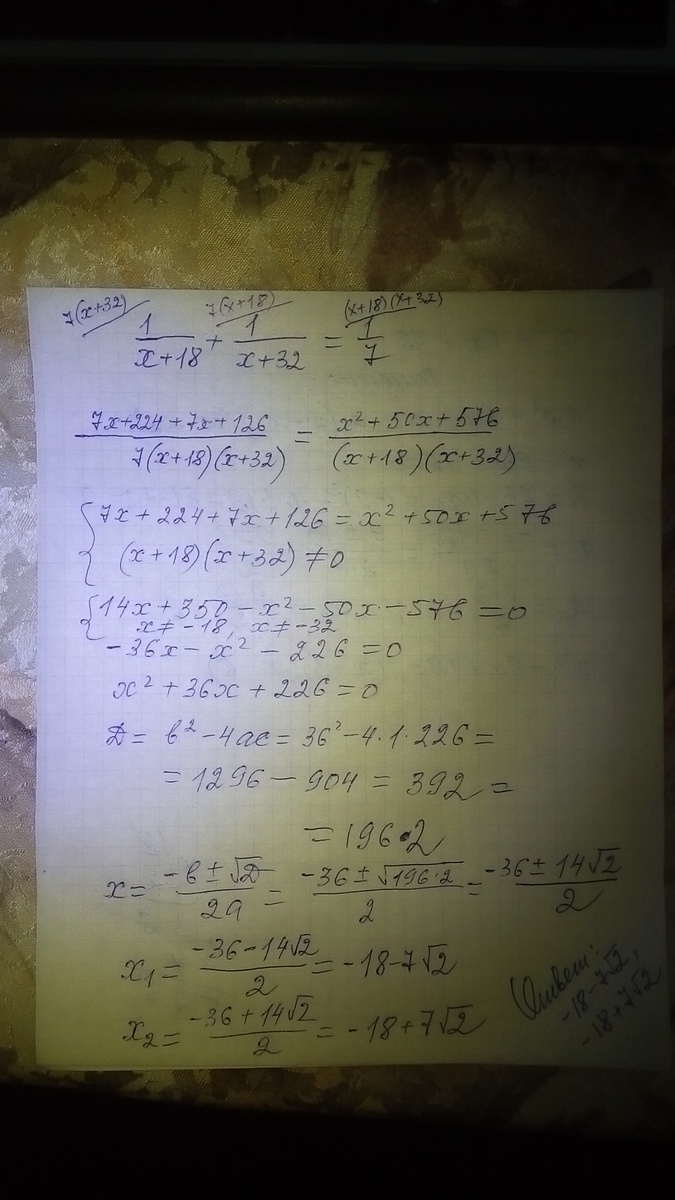 7(x+32) 7(x+18) (x+18)(x+32)
1/(x+18) + 1/(x+32) = 1/7
(7x+224+7x+126)/(7(x+18)(x+32)) = (x²+50x+576)/((x+18)(x+32))
{ 7x+224+7x+126 = x²+50x+576
(x+18)(x+32) ≠ 0
{ 14x+350-x²-50x-576 = 0
x ≠ -18, x ≠ -32
-36x-x²-226 = 0
x²+36x+226 = 0
D = b²-4ac = 36²-4·1·226 =
= 1296-904 = 392 =
= 196·2
x = (-b±√D)/2a = (-36±√(196·2))/2 = (-36±14√2)/2
x₁ = (-36-14√2)/2 = -18-7√2
x₂ = (-36+14√2)/2 = -18+7√2
Ответ:
-18-7√2,
-18+7√2